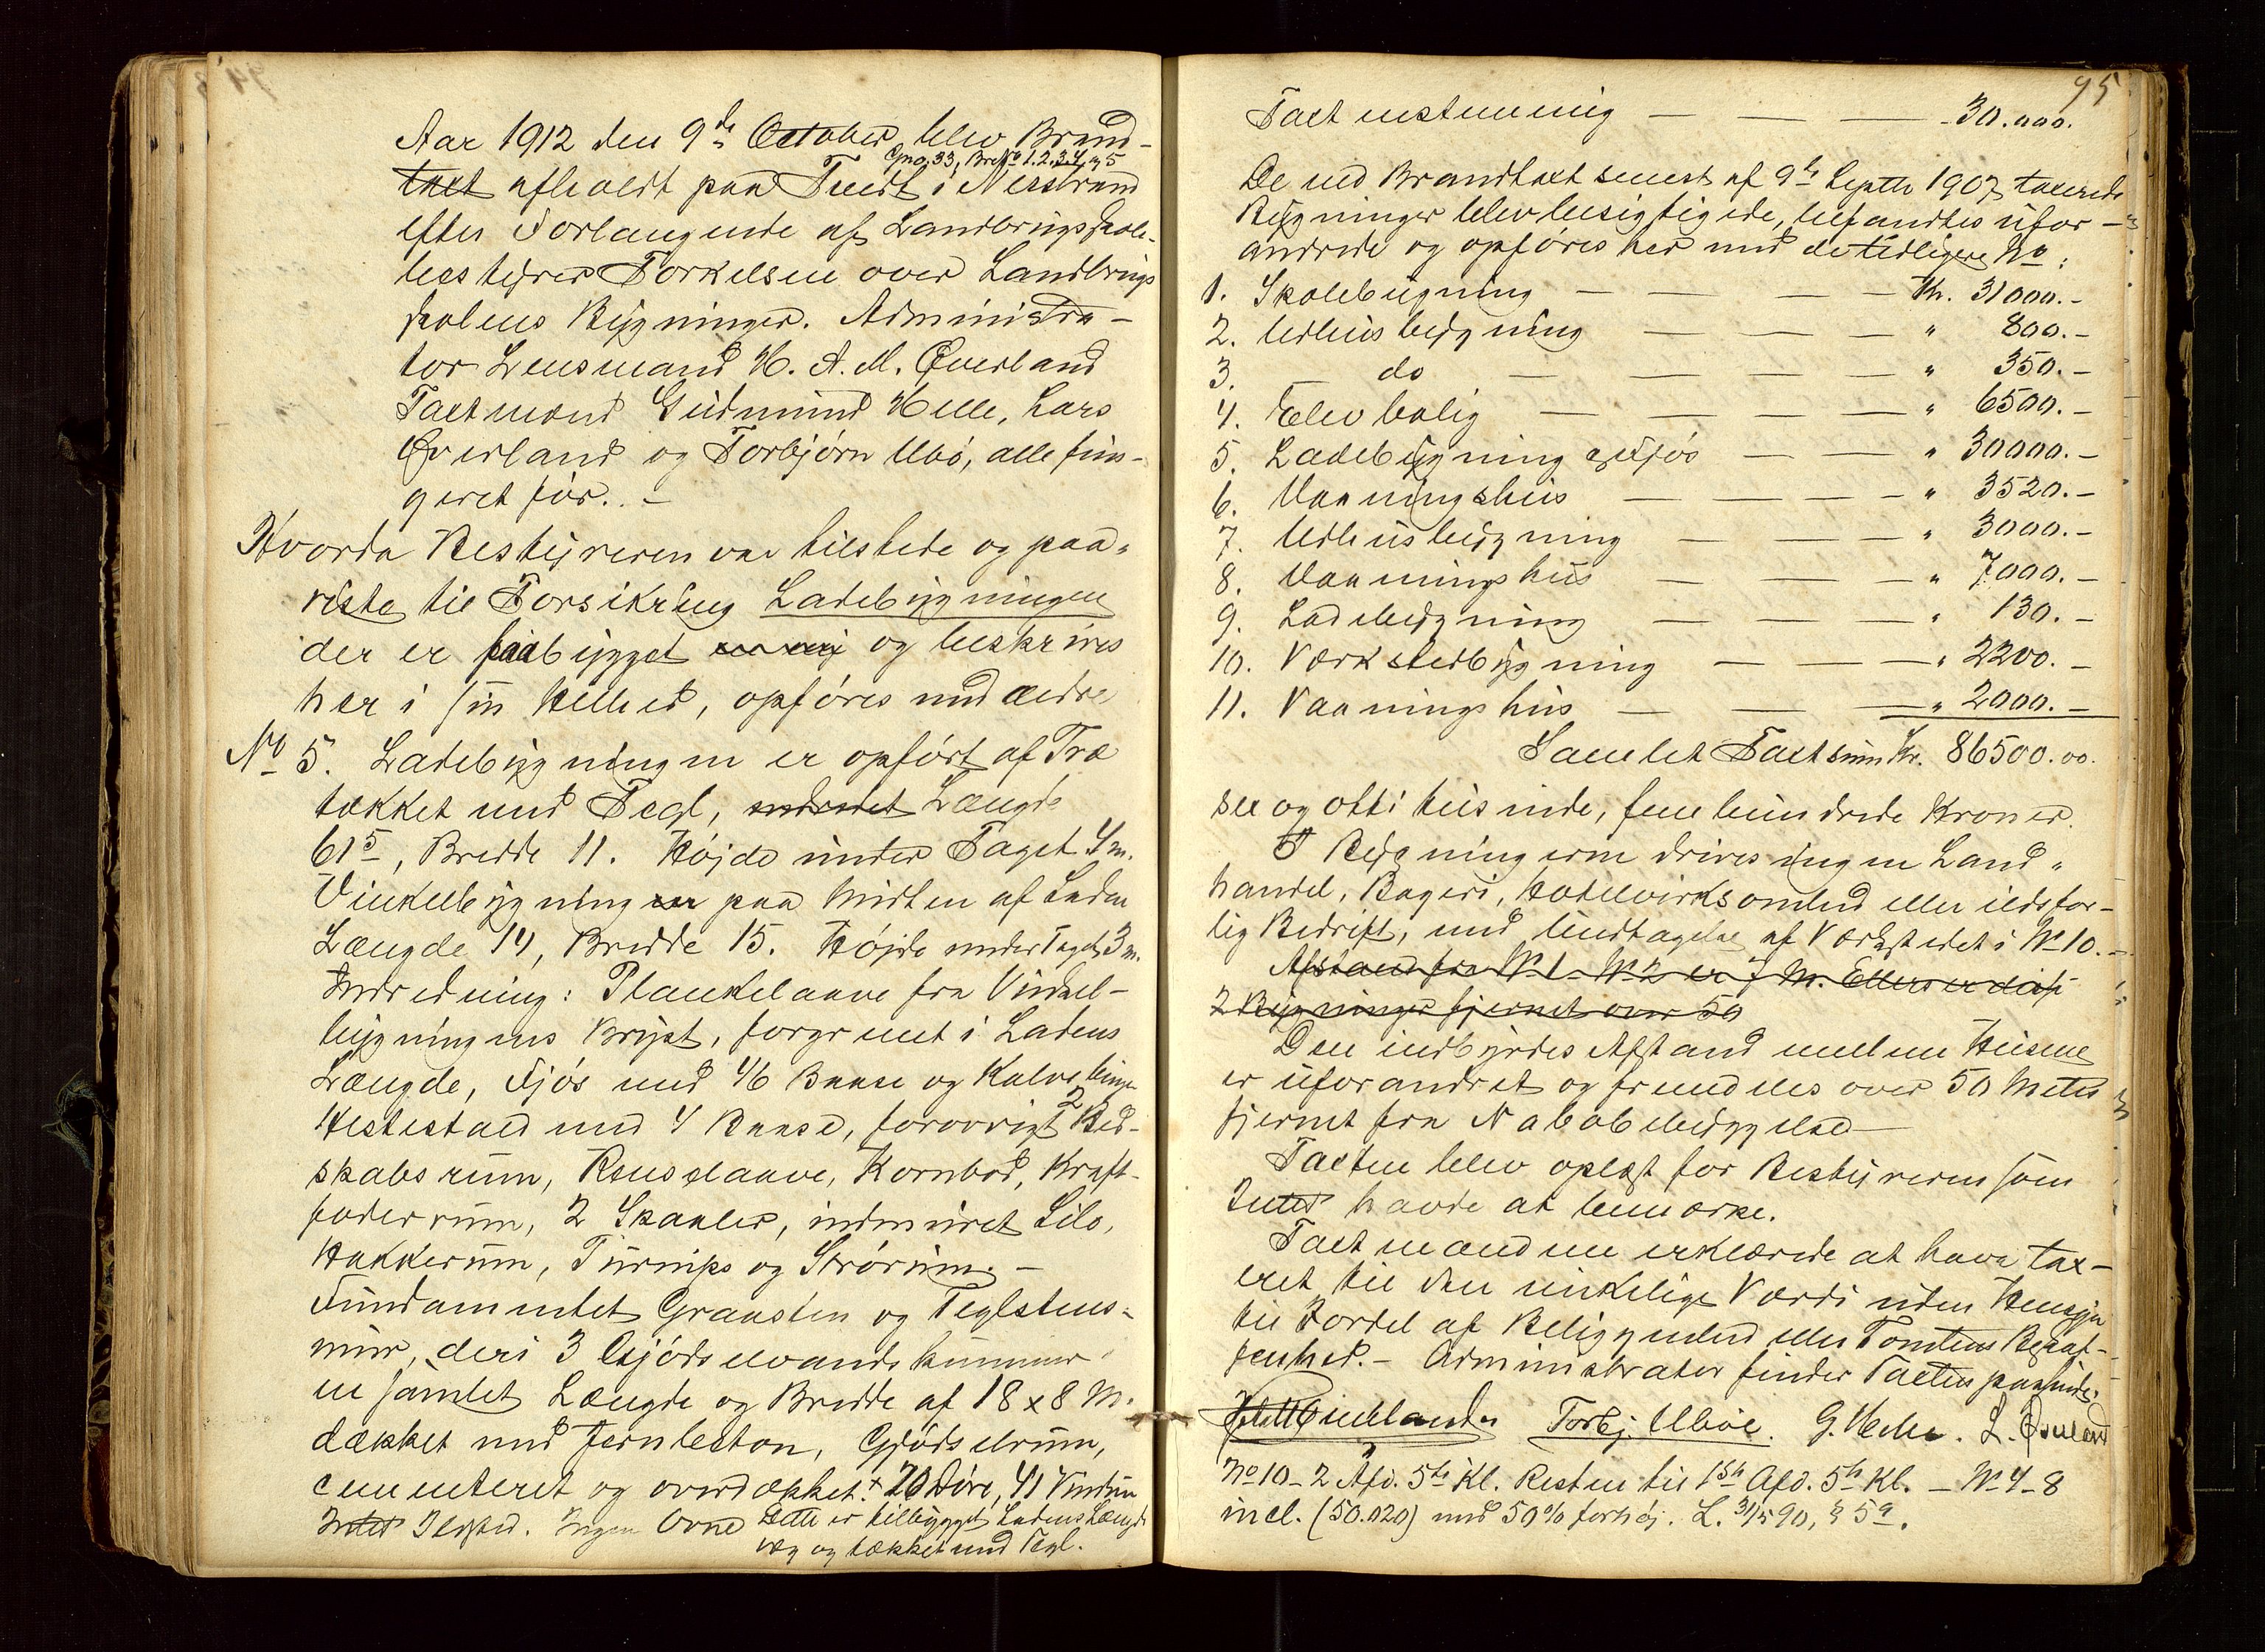 Aar 1912 den 9de October blev Brand-
Gno. 33, Brno 1.2.3.4 & 5
taxt afholdt paa Tveit i Nerstrand
efter Forlangende af Landbrugsskole-
bestyrer Torkelsen over Landbrugs
skolens Bygninger. Administra-
tor Lensmand H. A. M. Qverland
Taxtmænd Gudmund Helle, Lars
Qverland og Torbjørn Ubø, alle fun-
geret før. -
Hvorda Bestyreren var tilstede og paa-
viste til Forsikring Ladebygningen
der er paabygget og beskrives
her i sin Helhed, opføres med ældre
No 5. Ladebygningen er opført af Træ
tækket med Tegl, Længde
61 5, Bredde 11. Højde under Taget 4 m.
Vinkelbygning paa Midten af Laden
Længde 14, Bredde 15. Højde under Taget 3 m.
Indredning: Plankelaave fra Vinkel-
bygningens Bryst, forgrenet i Ladens
Længde, Fjøs med 46 Baase og Kalvebinge
Hestestald med 4 Baase, forøvrigt 2 Red-
skabsrum, Renselaave, Kornbod, Kraft-
foderrum, 2 Skaaler, indmuret Silo,
Hakkerum, Turnips og Strørum. -
Fundamentet Graasten og Teglstens-
mur, deri 3 Gjødselvandskummer
en samlet Længde og Bredde af 18 x 8 M.
dækket med Jernbeton, Gjødselrum,
cementeret og overdækket. + 20 Døre, 41 Vinduer
Intet Ildsted. Ingen Ovne Dette er tilbygget Ladens Længde
væg og tækket med Tegl.
95
Taxt enstemmig — — — 30.000.
De ved Brandtaxt senest af 9de Septbr 1907 taxerede
Bygninger blev besigtigede, befandtes ufor-
andrede og opføres her med de tidligere No:
1. Skolebygning — — — Kr. 31000.-
2. Udhusbygning — — — " 800.-
3. do — — — " 350.-
4. Elevbolig — — — " 6500.-
5. Ladebygning & Fjøs — — " 30000.-
6. Vaaningshus — — — " 3520.-
7. Udhusbygning — — — " 3000.-
8. Vaaningshus — — — " 7000.-
9. Ladebygning — — — " 130.-
10. Værkstedbygning — — — " 2200.-
11. Vaaningshus — — — " 2000.-
Samlet Taxtsum Kr. 86500.00.
sex og otti tusinde, fem hundrede Kroner.
I Bygningerne drives ingen Land-
handel, Bageri, Hotelvirksomhed eller ildsfar-
lig Bedrift, med Undtagelse af Værkstedet i No 10. -
Afstand fra No 1 - No 2 er 7 M. Ellers er disse
2 Bygninger fjernet over 50
Den indbyrdes Afstand mellem Husene
er uforandret og fremdeles over 50 Meter
fjernet fra Nabobebyggelse —
Taxten blev oplæst for Bestyreren som
Intet havde at bemærke.
Taxtmændene erklærede at have tax-
eret til den virkelige Værdi uden Hensyn
til Fordel af Beliggenhed eller Tomtens Beskaf-
fenhed. - Administrator finder Taxten passende.
H. A. M. Qverland Torbj. Uboe. G. Helle. L. Qverland
No 10 - 2 Afd. 5te Kl. Resten til 1ste Afd. 5te Kl. - No 4-8
incl. (50.020) med 50% forhøj. L. 31/5 90, § 5 a.